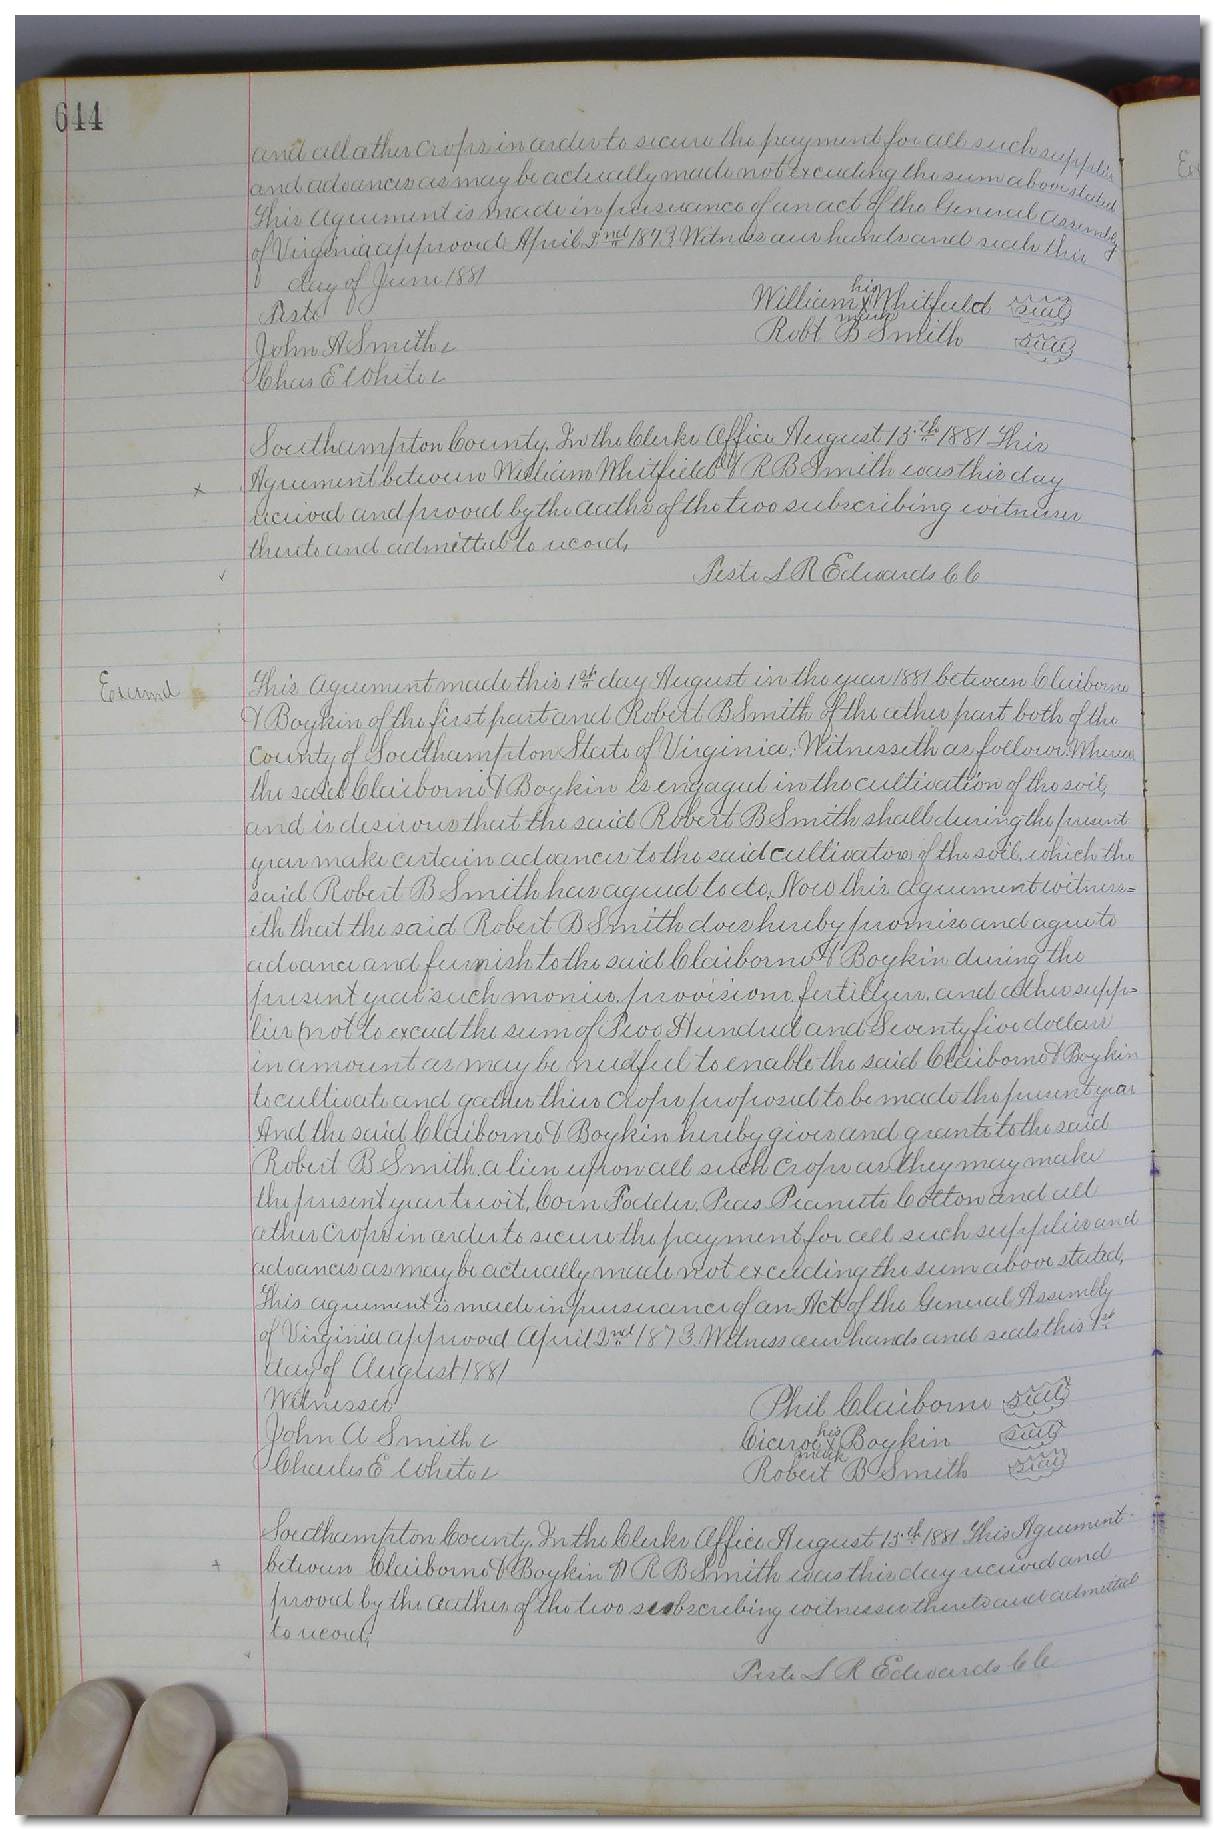 644
and all other crops in order to secure the payment for all such supplies
and advances as may be actually made not exceeding the sum above stated
This agreement is made in pursuance of an act of the General Assembly
of Virginia approved April 2nd 1873 Witness our hands and seals this
day of June 1881
Teste
William his X mark Whitfield seal
Robt B Smith seal
John A Smith
Chas E White
Southampton County, In the Clerks Office August 15th 1881 This
x Agreement between William Whitfield & R B Smith was this day
received and proved by the oaths of the two subscribing witnesses
thereto and admitted to record,
Teste L R Edwards C C
Examd
This agreement made this 1st day August in the year 1881 between Claiborne
& Boykin of the first part and Robert B Smith of the other part both of the
County of Southampton State of Virginia: Witnesseth as follows: Whereas
the said Claiborne & Boykin is engaged in the cultivation of the soil,
and is desirous that the said Robert B Smith shall during the present
year make certain advances to the said cultivators of the soil, which the
said Robert B Smith has agreed to do, Now this agreement witness=
eth that the said Robert B Smith does hereby promise and agree to
advance and furnish to the said Claiborne & Boykin during the
present year such monies, provisions, fertilizers, and other supp=
lies (not to exceed the sum of Two Hundred and Seventy five dollars
in amount as may be needful to enable the said Claiborne & Boykin
to cultivate and gather their crops proposed to be made the present year
And the said Claiborne & Boykin hereby gives and grants to the said
Robert B Smith a lien upon all such crops as they may make
the present year to wit, Corn Fodder, Peas Peanuts Cotton and all
other crops in order to secure the payment for all such supplies and
advances as may be actually made not exceeding the sum above stated,
This agreement is made in pursuance of an Act of the General Assembly
of Virginia approved April 2nd 1873. Witness our hands and seals this 1st
day of August 1881
Witnesses
Phil Claiborne seal
John A Smith
Cicero his X mark Boykin seal
Charles E White
Robert B Smith seal
Southampton County, In the Clerks Office August 15th 1881 This Agreement
between Claiborne & Boykin & R B Smith was this day received and
proved by the oathes of the two subscribing witnesses thereto and admitted
to record,
Teste L R Edwards C C